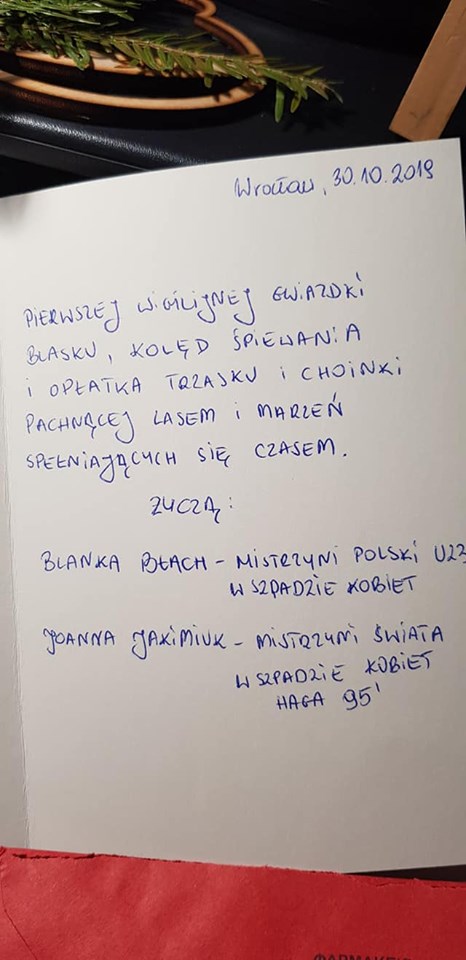 Wrocław, 30.10.2019
PIERWSZEJ WIGILIJNEJ GWIAZDKI
BLASKU, KOLĘD ŚPIEWANIA
I OPŁATKA TRZASKU I CHOINKI
PACHNĄCEJ LASEM I MARZEŃ
SPEŁNIAJĄCYCH SIĘ CZASEM.
ŻYCZĄ:
BLANKA BŁACH - MISTRZYNI POLSKI U23
W SZPADZIE KOBIET
JOANNA JAKIMIUK - MISTRZYNI ŚWIATA
W SZPADZIE KOBIET
HAGA 95'